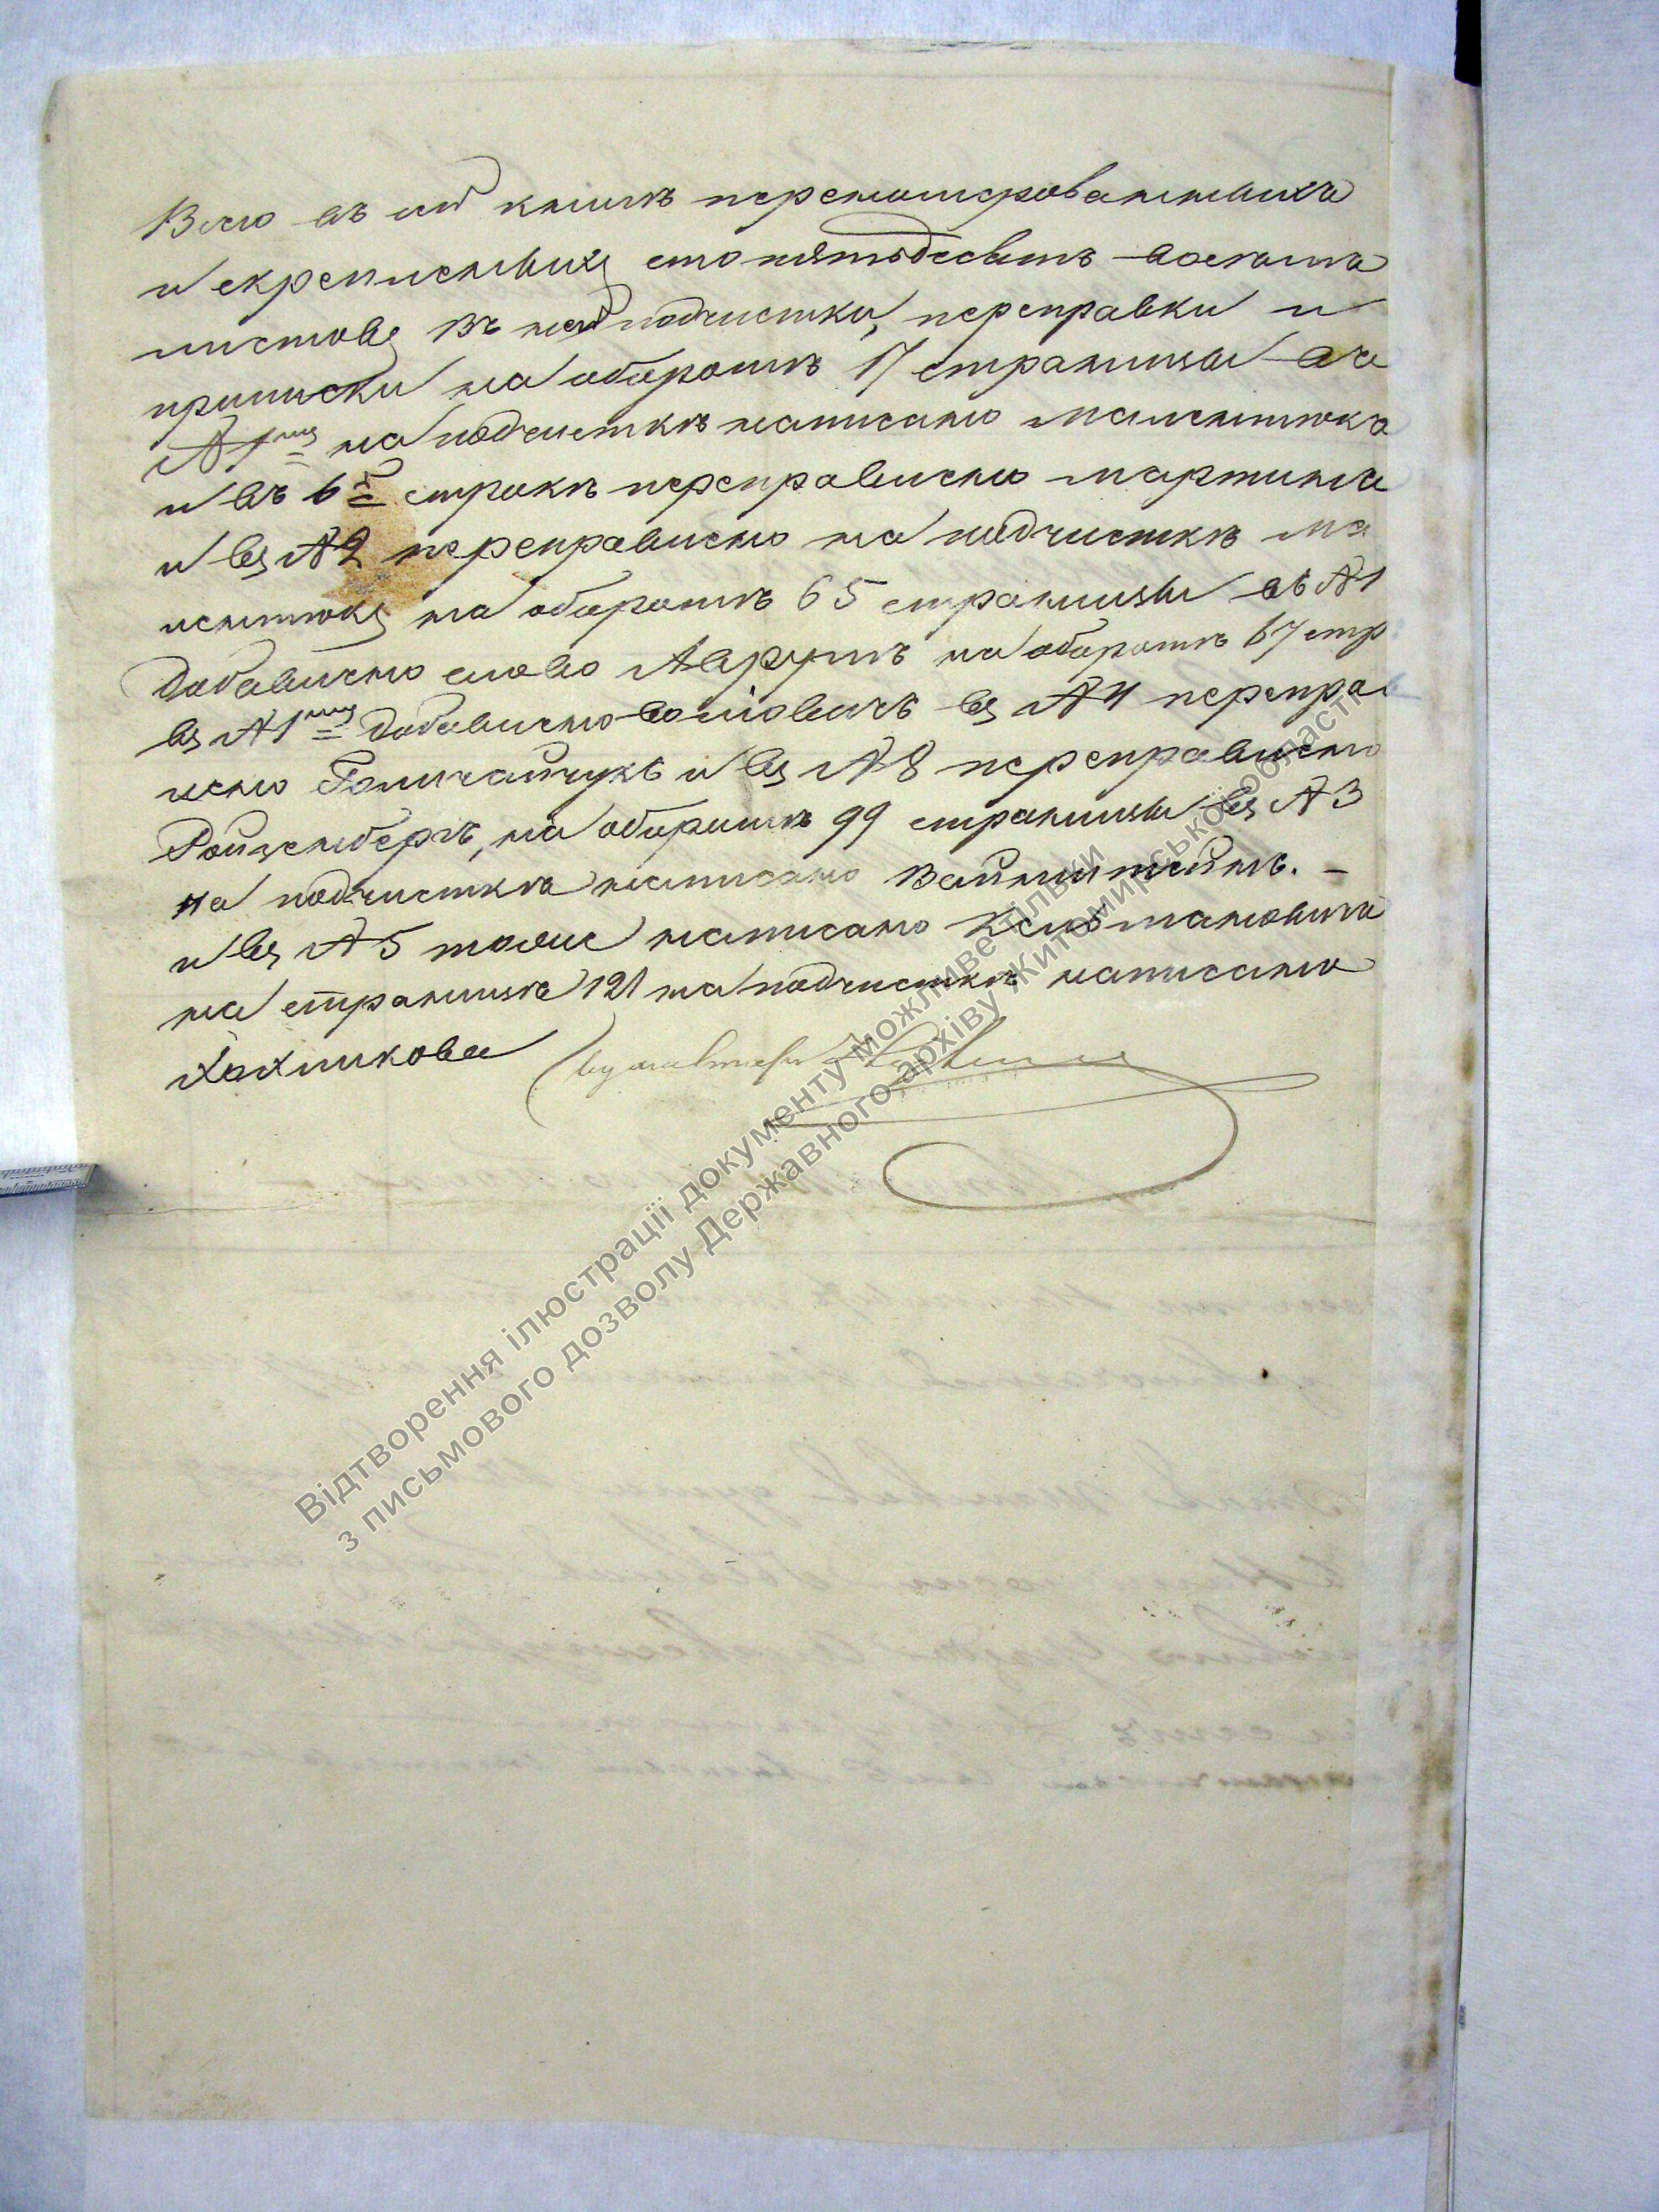 Всего въ сей книгѣ перенумерованныхъ
и скрепленныхъ сто пятьдесятъ восемь
листовъ Въ ней подчистки, переправки и
приписки на оборотѣ 17 страницы въ
№ 1мъ на подчисткѣ написано
и въ 6й строкѣ переправлено Мартинъ
и въ № 2 переправлено на подчисткѣ
на оборотѣ 65 страницы въ № 1
добавлено слово Аврумъ на оборотѣ 67 стр
въ № 1мъ добавлено въ № 4 переправ
лено и въ № 8 переправлено
Ройзенбергъ, на оборотѣ 99 страницы въ № 3
на подчисткѣ написано Вайнштейнъ. –
и въ № 5 тоже написано Кельмановичъ
на страницѣ 121 на подчисткѣ написано
Бухгалтеръ
Відтворення ілюстрації документу можливе тільки
з письмового дозволу Державного архіву Житомирської області